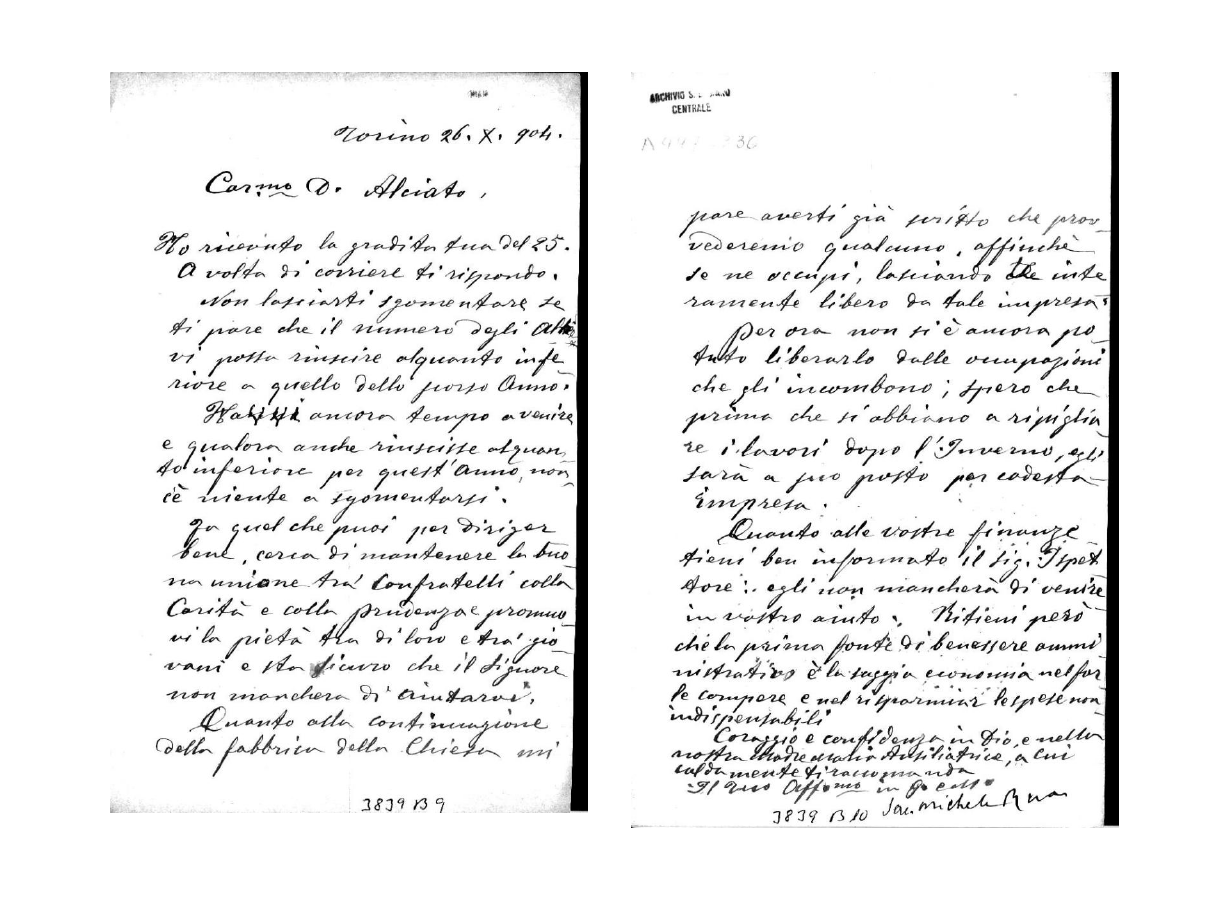 Torino 26. X. 904.
Car.mo D. Alciato,
Ho ricevuto la gradita tua del 25.
A volta di corriere ti rispondo.
Non lasciarti sgomentare se
ti pare che il numero degli
vi possa riuscire alquanto infe
riore a quello dello scorso Anno.
ancora tempo a venire
e qualora anche riuscisse alquan
to inferiore per quest'Anno, non
c'è niente a sgomentarsi.
Fa quel che puoi per diriger
bene, cerca di mantenere la buo
na unione trà Confratelli colla
Carità e colla prudenza e promuo
vi la pietà tra di loro e trà gio
vani e sta sicuro che il Signore
non mancherà di aiutarvi.
Quanto alla continuazione
della fabbrica della Chiesa mi
3839 B 9
ARCHIVIO
CENTRALE
pare averti già scritto che prov
vederemo qualcuno, affinchè
se ne occupi, lasciando te inte
ramente libero da tale impresa.
Per ora non si è ancora po
tuto liberarlo dalle occupazioni
che gli incombono; spero che
prima che si abbiano a ripiglia
re i lavori dopo l'Inverno, egli
sarà a suo posto per codesta
impresa.
Quanto alle vostre finanze
tieni ben informato il sig. Ispet
tore: egli non mancherà di venire
in vostro aiuto. Ritieni però
che la prima fonte di benessere ammi
nistrativo è la saggia economia nel far
le compere e nel risparmiar le spese non
indispensabili
Coraggio e confidenza in Dio, e nella
nostra Madre Maria Ausiliatrice, a cui
caldamente ti raccomanda
Il tuo Aff.mo in
Sac. Michele Rua
3839 B 10